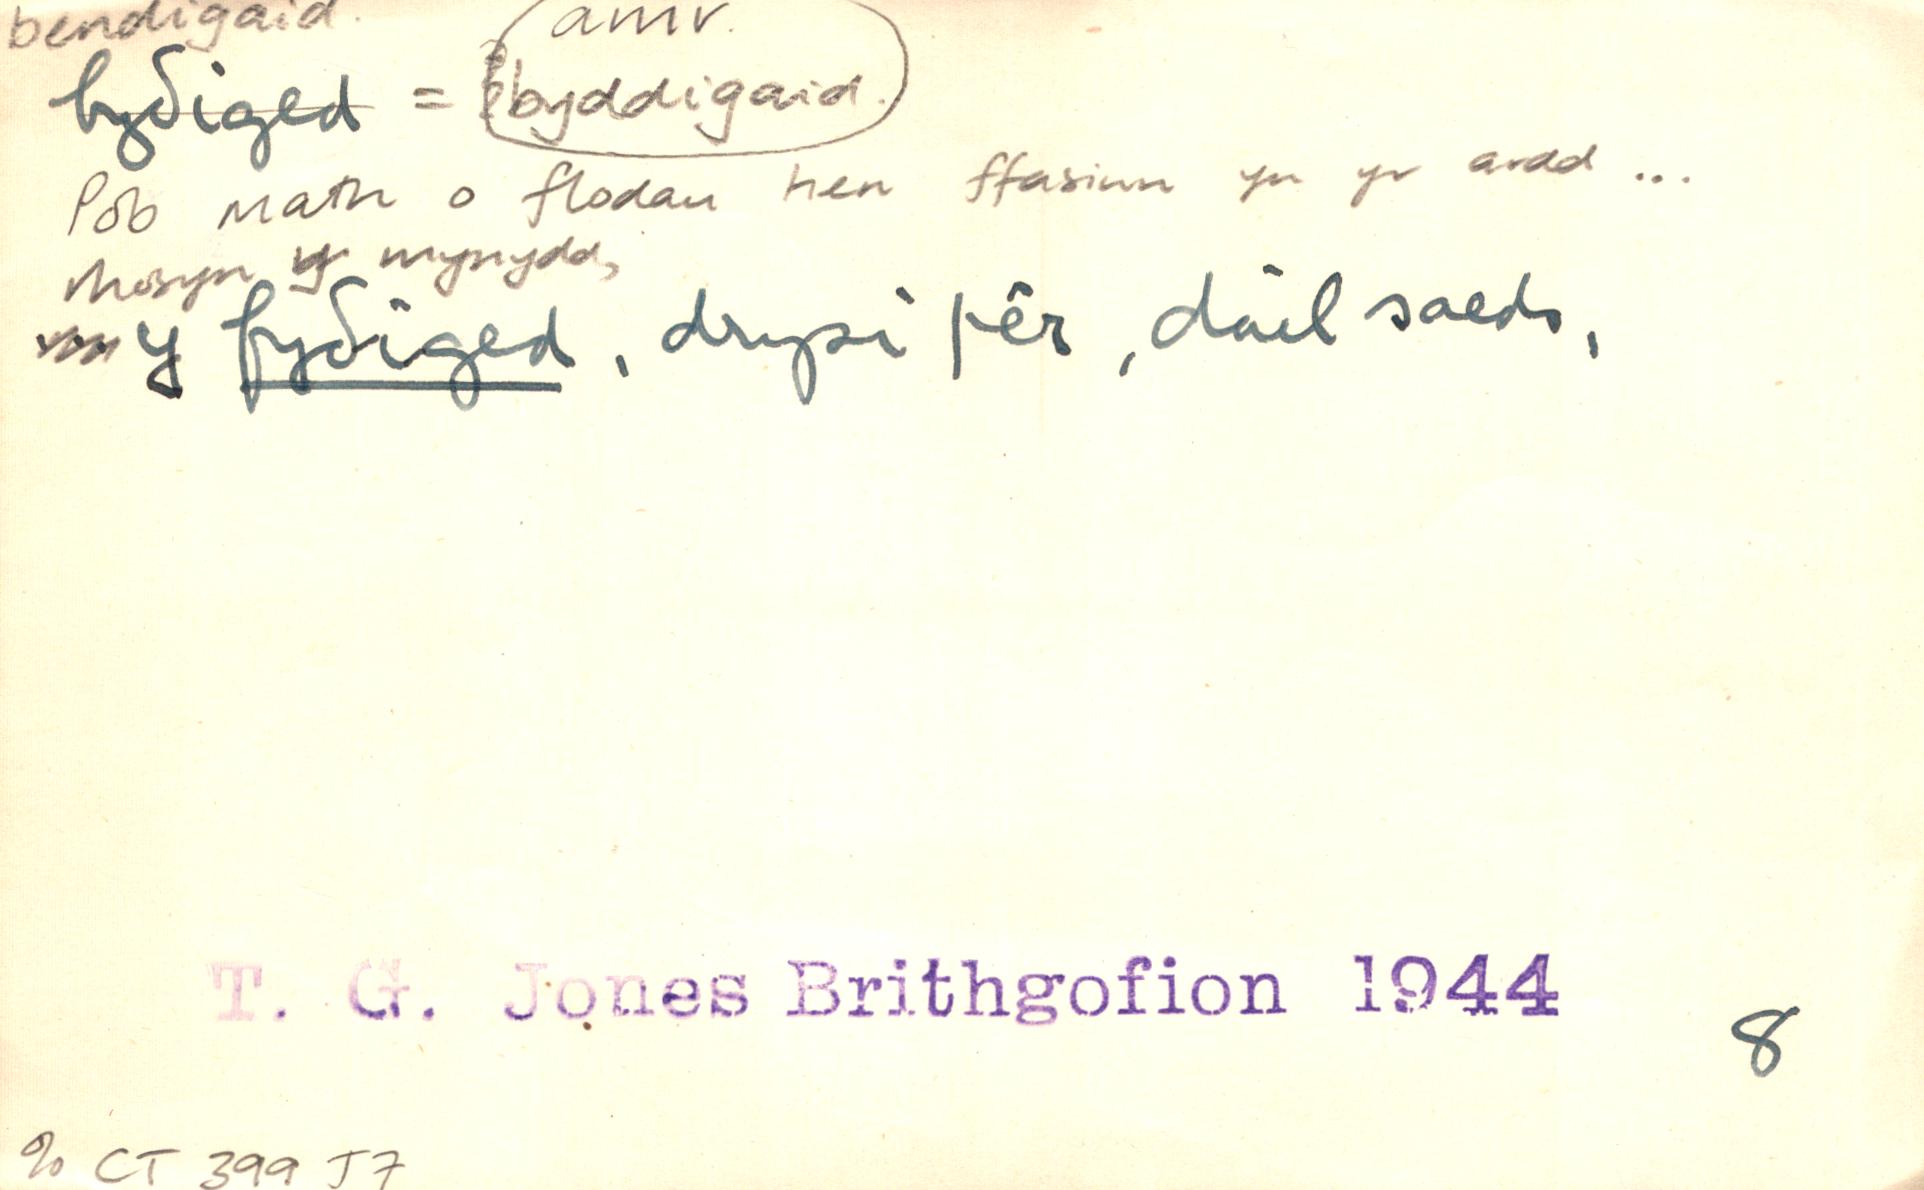 bendigaid.
amr.
byδiged = byddigaid.
Pob math o flodau hen ffasiwn yn yr ardd ...
rhosyn y mynydd,
y fyδiged, drysi pêr, dail saeds,
T. G. Jones Brithgofion 1944
8
% CT 399 J7